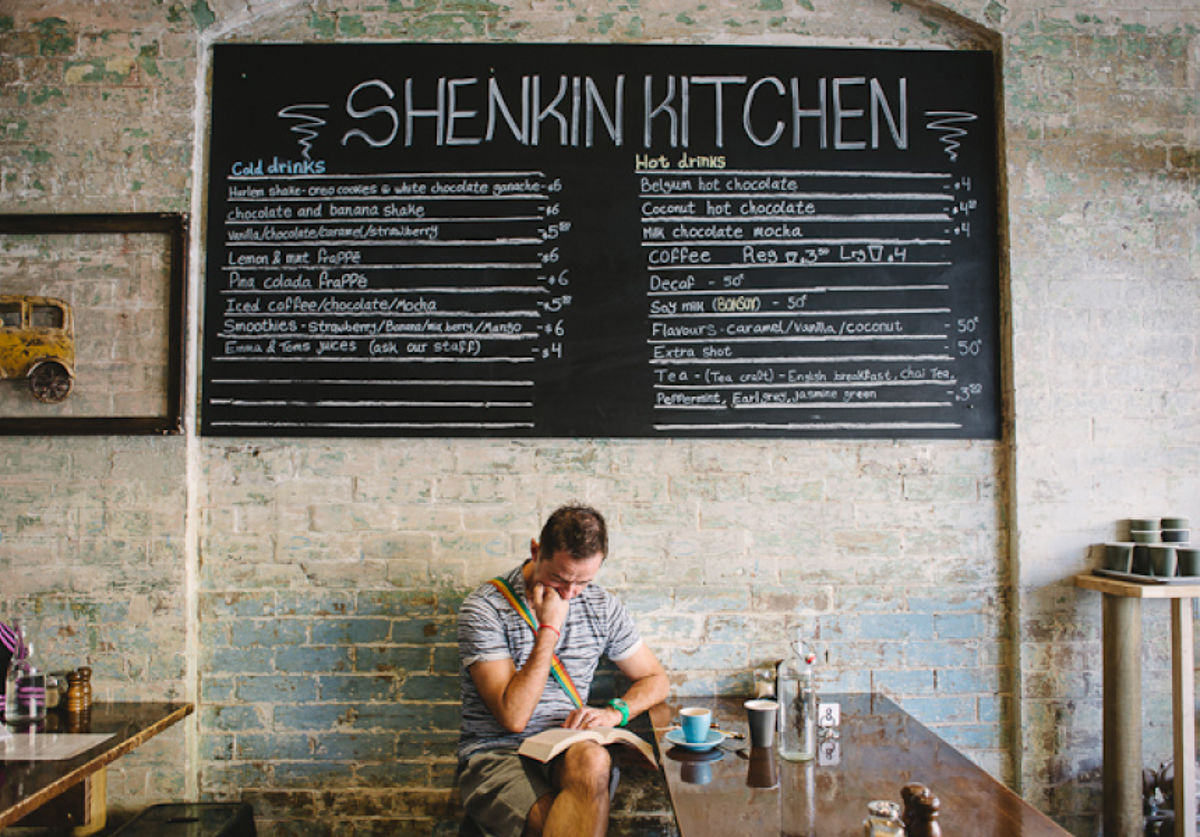 SHENKIN KITCHEN
Cold drinks
Harlem shake-oreo cookies & white chocolate ganache-$6
chocolate and banana shake -$6
Vanilla/chocolate/caramel/strawberry -$5⁵⁰
Lemon & mint fraPPé -$6
Pina colada fraPPé -$6
Iced coffee/chocolate/Mocha -$5⁵⁰
Smoothies - strawberry/Banana/mix berry/Mango -$6
Emma & Toms juices (ask our staff) -$4
Hot drinks
Belgium hot chocolate -$4
Coconut hot chocolate -$4⁵⁰
Milk chocolate mocha -$4
coffee Reg $3⁵⁰ Lrg $4
Decaf - 50¢
Soy milk (BONSOY) - 50¢
Flavours-caramel/vanilla/coconut - 50¢
Extra shot - 50¢
Tea-(Tea craft)-English breakfast, chai Tea,
Peppermint, Earl grey, jasmine green -$3⁵⁰
8